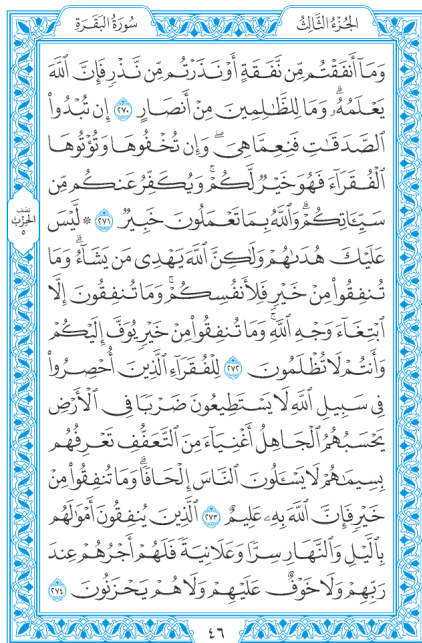 الجُزْءُ الثَّالِثُ
سُورَةُ البَقَرَةِ
وَمَآ أَنفَقْتُم مِّن نَّفَقَةٍ أَوْ نَذَرْتُم مِّن نَّذْرٍ فَإِنَّ ٱللَّهَ
يَعْلَمُهُۥۗ وَمَا لِلظَّٰلِمِينَ مِنْ أَنصَارٍ ٢٧٠ إِن تُبْدُوا۟
ٱلصَّدَقَٰتِ فَنِعِمَّا هِىَۖ وَإِن تُخْفُوهَا وَتُؤْتُوهَا
ٱلْفُقَرَآءَ فَهُوَ خَيْرٌ لَّكُمْۚ وَيُكَفِّرُ عَنكُم مِّن
سَيِّـَٔاتِكُمْۗ وَٱللَّهُ بِمَا تَعْمَلُونَ خَبِيرٌ ٢٧١ ۞ لَّيْسَ
عَلَيْكَ هُدَىٰهُمْ وَلَٰكِنَّ ٱللَّهَ يَهْدِى مَن يَشَآءُۗ وَمَا
تُنفِقُوا۟ مِنْ خَيْرٍ فَلِأَنفُسِكُمْۚ وَمَا تُنفِقُونَ إِلَّا
ٱبْتِغَآءَ وَجْهِ ٱللَّهِۚ وَمَا تُنفِقُوا۟ مِنْ خَيْرٍ يُوَفَّ إِلَيْكُمْ
وَأَنتُمْ لَا تُظْلَمُونَ ٢٧٢ لِلْفُقَرَآءِ ٱلَّذِينَ أُحْصِرُوا۟
فِى سَبِيلِ ٱللَّهِ لَا يَسْتَطِيعُونَ ضَرْبًا فِى ٱلْأَرْضِ
يَحْسَبُهُمُ ٱلْجَاهِلُ أَغْنِيَآءَ مِنَ ٱلتَّعَفُّفِ تَعْرِفُهُم
بِسِيمَٰهُمْ لَا يَسْـَٔلُونَ ٱلنَّاسَ إِلْحَافًاۗ وَمَا تُنفِقُوا۟ مِنْ
خَيْرٍ فَإِنَّ ٱللَّهَ بِهِۦ عَلِيمٌ ٢٧٣ ٱلَّذِينَ يُنفِقُونَ أَمْوَٰلَهُم
بِٱلَّيْلِ وَٱلنَّهَارِ سِرًّا وَعَلَانِيَةً فَلَهُمْ أَجْرُهُمْ عِندَ
رَبِّهِمْ وَلَا خَوْفٌ عَلَيْهِمْ وَلَا هُمْ يَحْزَنُونَ ٢٧٤
نصف
الحزب
٥
٤٦